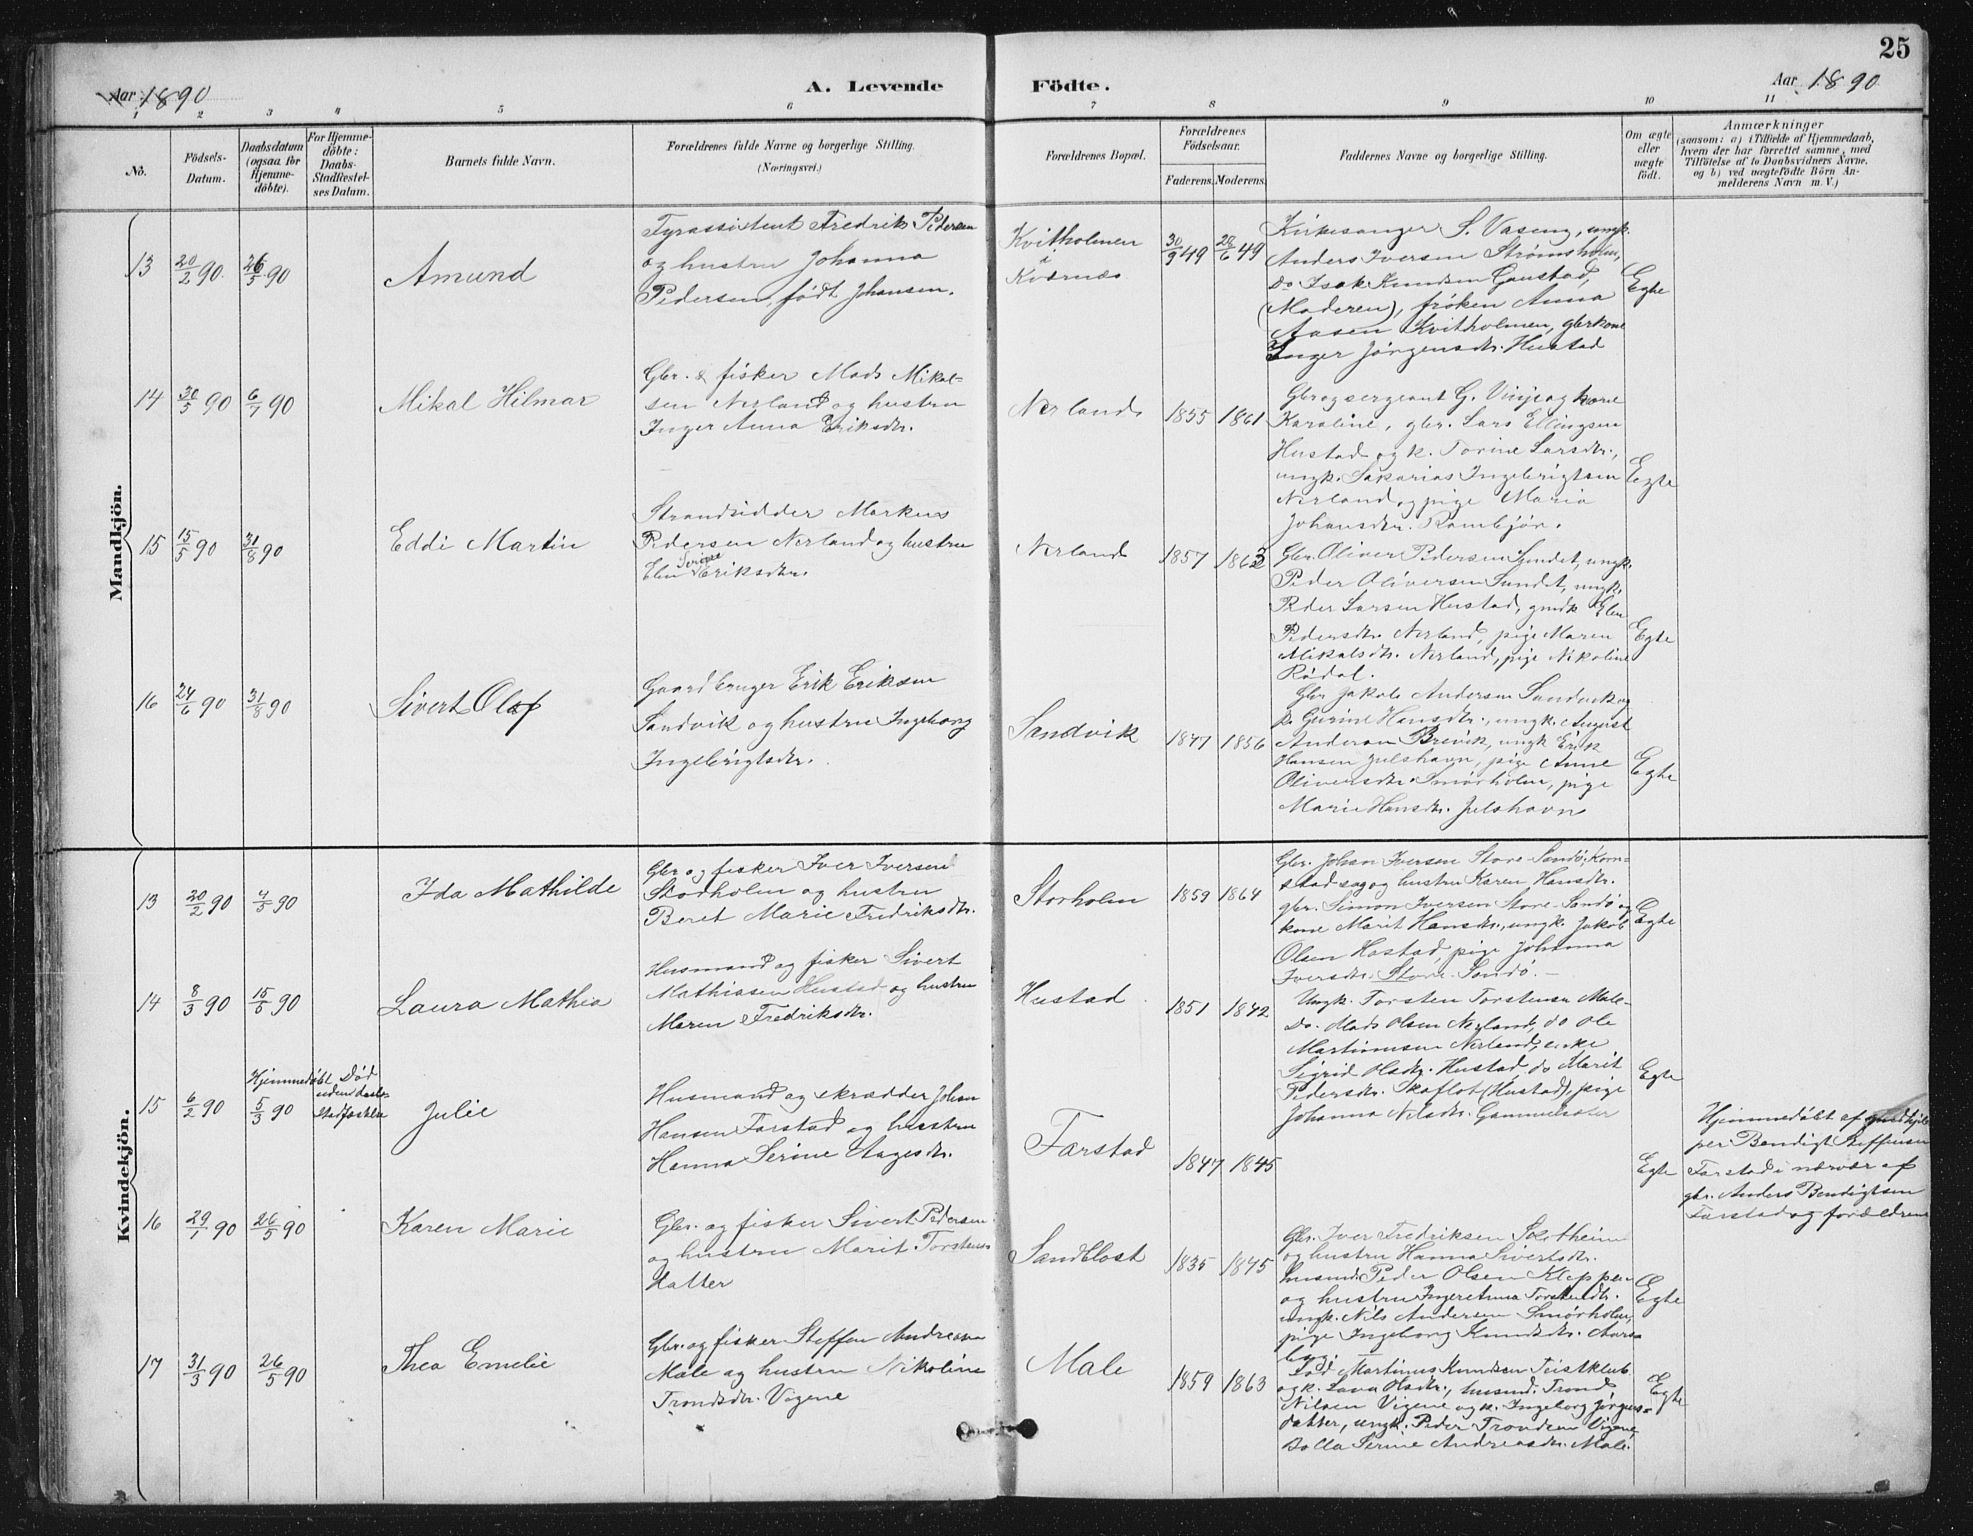 25
Aar 1890
A. Levende Födte.
Aar 1890
1 2 3 4 5 6 7 8 9 10 11
No.
Födsels-Datum.
Daabsdatum (ogsaa for Hjemme-döbte).
For Hjemme-döbte: Daabs-Stadfæstel-ses Datum.
Barnets fulde Navn.
Forældrenes fulde Navne og borgerlige Stilling.
(Næringsvei.)
Forældrenes Bopæl.
Forældrenes Födselsaar.
Faderens. Moderens.
Faddernes Navne og borgerlige Stilling.
Om ægte eller uægte födt.
Anmærkninger
(saasom: a) i Tilfælde af Hjemmedaab,
hvem der har forrettet samme, med
Tilföielse af to Daabsvidners Navne.
og b) ved uægtefödte Börn An-
melderens Navn m. V.)
Mandkjön.
13 20/2 90. 26/5 90
Amund
Fyrassistent Fredrik Pedersen
og hustru Johanna
Pedersen, født Johansen.
Kvitholmen
i
Kværnæs
30/9 49 28/6 49
Kirkesanger S. Vaseng, ungk.
Anders Iversen Strømsholm,
Do Isak Knudsen Gaustad,
(Moderen), frøken Anna
Aasen Kvitholmen, gbrkone
Inger Jørgensdtr. Hustad
Egte
14 30/5 90 6/7 90
Mikal Hilmar
Gbr. & fisker Mads Mikal-
sen Nerland og hustru
Inger Anna Eriksdtr.
Nerland
1855 1861
Gbr og sergeant G. Vinje og kone
Karoline, gbr. Lars Ellingsen
Hustad og k. Torine Larsdtr.,
ungk. Sakarias Ingebrigtsen
Nerland og pige Maria
Johansdtr. Rambjør.
Egte
15 15/5 90 31/8 90
Eddi Martin
Strandsidder Markus
Pedersen Nerland og hustru
Elen Serine Eriksdtr.
Nerland
1857 1863
Gbr. Oliver Pedersen Sundet, ungk.
Peder Oliversen Sundet, ungk.
Peder Larsen Hustad, gmdk Elen
Pedersdtr. Nerland, pige Maren
Mikalsdtr. Nerland, pige Nikoline
Rødal.
Egte
16 24/6 90 31/8 90
Sivert Olaf
Gaardbruger Erik Eriksen
Sandvik og hustru Ingeborg
Ingebrigtsdtr.
Sandvik
1847 1856
Gbr Jakob Andersen Sandvik og
k. Gurine Hansdtr., ungk. August
Andersen Brevik, ungk Erik
Hansen Julshavn, pige Anne
Oliversdtr. Smørholm, pige
Marie Hansdtr. Julshavn
Egte
Kvindekjön.
13 20/2 90 4/5 90
Ida Mathilde
Gbr og fisker Iver Iversen
Storholm og hustru
Beret Marie Fredriksdtr.
Storholm
1859 1864
Gbr. Johan Iversen Store-Sandø, Korn-
stad sog og hustru Karen Hansdtr.
gbr. Simon Iversen Store-Sandø og
kone Marit Hansdtr., ungk. Jakob
Olsen Hostad, pige Johanna
Iversdtr. Store-Sandø. –
Egte
14 8/3 90 15/5 90
Laura Mathia
Husmand og fisker Sivert
Mathiasen Hustad og hustru
Maren Fredriksdtr.
Hustad
1851 1842
Ungk. Torsten Torstensen Male-
Do. Mads Olsen Nerland, do Ole
Martinusen Nerland, enke
Sigrid Olsdtr. Hustad, do Marit
Pedersdtr. Skaflot (Hustad), pige
Johanna Nelsdtr. Gammelsæter
Egte
15 6/2 90 Hjemmedøbt 5/3 90
Død uden daabs-Stadfæstelse
Julie
Husmand og skrædder Johan
Hansen Farstad og hustru
Hanna Serine Aagesdtr.
Farstad
1847 1845
Egte
Hjemmedøbt af
per Bendigt Steffensen
Farstad i nærvær af
gbr. Anders Bendigtsen
Farstad og forældrene
16 29/1 90 26/5 90
Karen Marie
Gbr. og fisker Sivert Pedersen
og hustru Marit Torstens-
datter
Sandblost
1835 1845
Gbr. Iver Fredriksen Skotheim
og hustru Hanna Sivertsdtr.
husmd. Peder Olsen Klopper
og hustru Ingeranna Torstensdtr.
ungk. Nils Andersen Smørholm,
pige Ingeborg Knudsdtr. Aars-
byg. –
Egte
17 31/3 90 26/5 90
Thea Emelie
Gbr. og fisker Steffen Andreasen
Male og hustru Nikoline
Trondsdtr. Vigene
Male
1859 1863
Lod Martinus Knudsen Teistklub
og k. Lava Olsdtr., husmd. Trond
Nilsen Vigene og k. Ingeborg Jørgens-
datter, ungk. Peder Trondsen Vigene,
Dolla Serine Andreasdtr. Male.
Egte